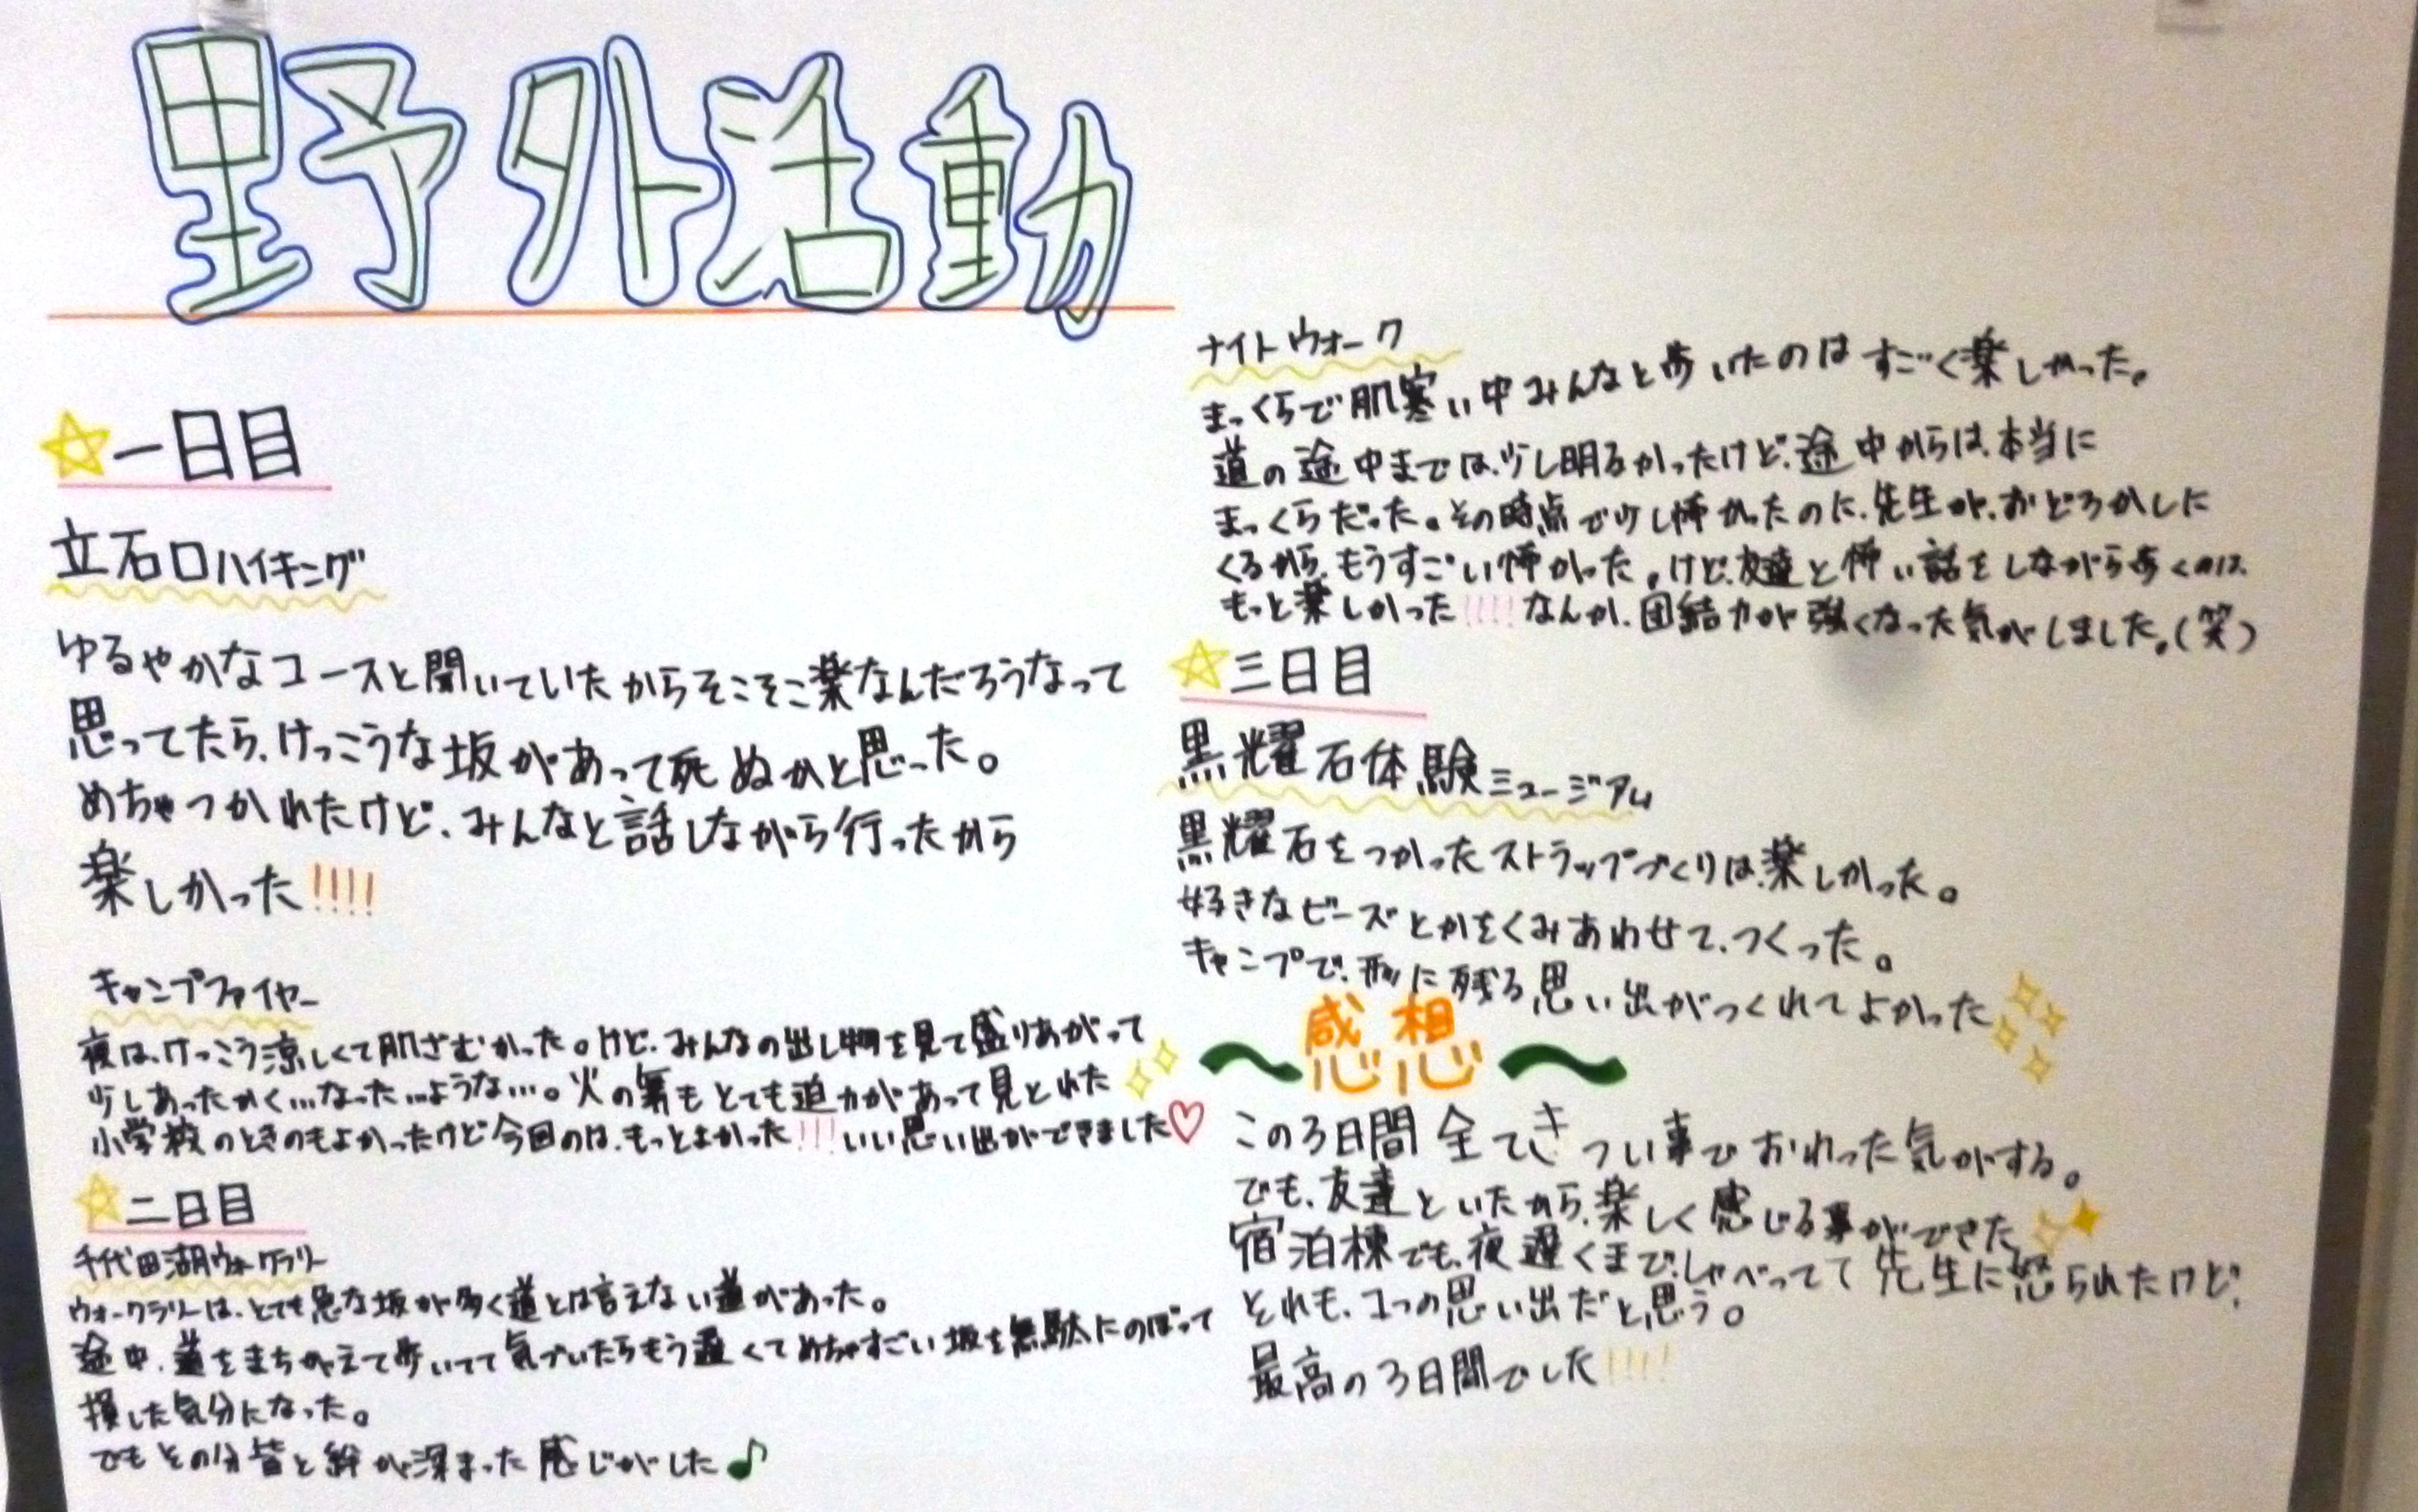 野外活動
一日目
立石口ハイキング
ゆるやかなコースと聞いていたからそこそこ楽なんだろうなって
思ってたら、けっこうな坂があって死ぬかと思った。
めちゃつかれたけど、みんなと話しながら行ったから
楽しかった!!!!
キャンプファイヤー
夜は、けっこう涼しくて肌ざむかった。けど、みんなの出し物を見て盛りあがって
少しあったかく…なった…ような…。火の舞もとても迫力があって見とれた
小学校のときのもよかったけど今回のは、もっとよかった!!!いい思い出ができました♡
二日目
千代田湖ウォークラリー
ウォークラリーは、とても急な坂が多く道とは言えない道があった。
途中、道をまちがえて歩いてて気づいたらもう遅くてめちゃすごい坂を無駄にのぼって
損した気分になった。
でもその分皆と絆が深まった感じがした♪
ナイトウォーク
まっくらで肌寒い中みんなと歩いたのはすごく楽しかった。
道の途中までは、少し明るかったけど、途中からは、本当に
まっくらだった。その時点で少し怖かったのに、先生が、おどろかしに
くるから、もうすごい怖かった。けど、友達と怖い話をしながら歩くのは、
もっと楽しかった!!!!なんか、団結力が強くなった気がしました。(笑)
三日目
黒耀石体験ミュージアム
黒耀石をつかったストラップづくりは、楽しかった。
好きなビーズとかをくみあわせて、つくった。
キャンプで、形に残る思い出がつくれてよかった
〜感想〜
この3日間全てきつい事でおわった気がする。
でも、友達といたから、楽しく感じる事ができた
宿泊棟でも、夜遅くまで、しゃべってて先生に怒られたけど、
それも、1つの思い出だと思う。
最高の3日間でした!!!!